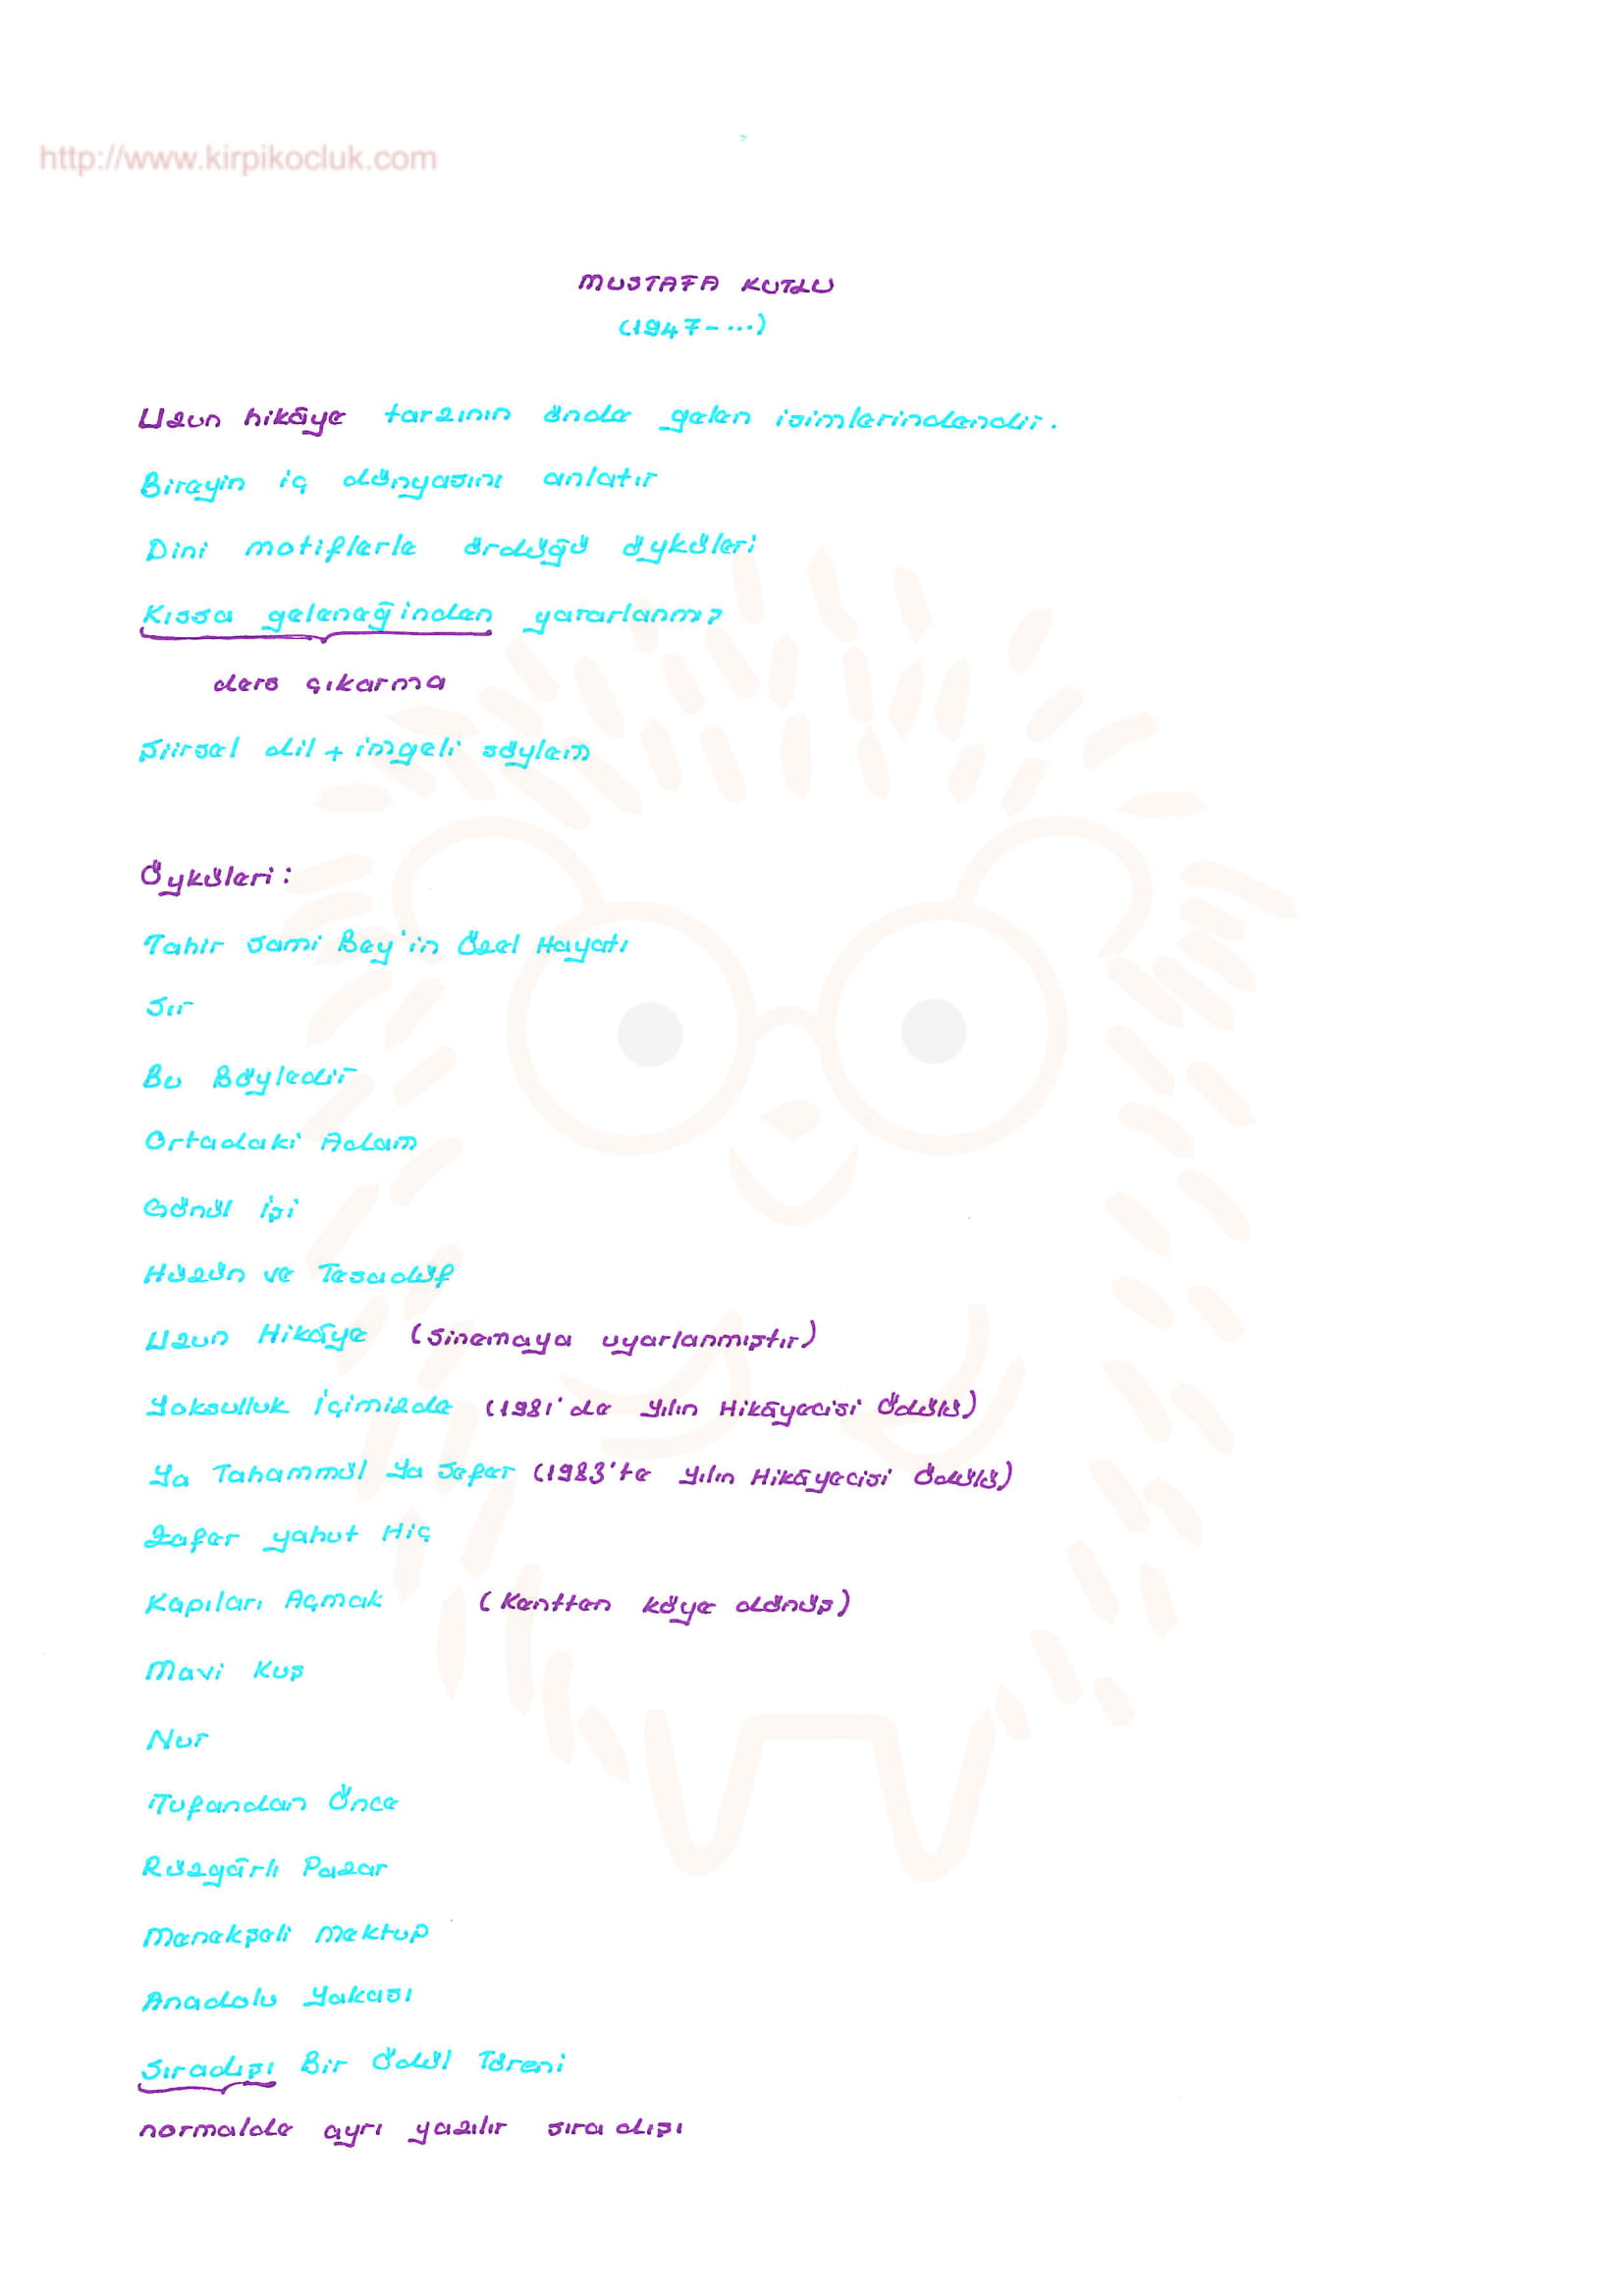 http://www.kirpikocluk.com
MUSTAFA KUTLU
(1947-...)
Uzun hikâye tarzının önde gelen isimlerindendir.
Bireyin iç dünyasını anlatır
Dini motiflerle ördüğü öyküleri
Kıssa geleneğinden yararlanmış
ders çıkarma
Şiirsel dil + imgeli söylem
Öyküleri:
Tahir Sami Bey'in Özel Hayatı
Sır
Bu Böyledir
Ortadaki Adam
Gönül İşi
Hüzün ve Tesadüf
Uzun Hikâye (Sinemaya uyarlanmıştır)
Yoksulluk İçimizde (1981'de Yılın Hikâyecisi Ödülü)
Ya Tahammül Ya Sefer (1983'te Yılın Hikâyecisi Ödülü)
Zafer yahut Hiç
Kapıları Açmak (Kentten köye dönüş)
Mavi Kuş
Nur
Tufandan Önce
Rüzgârlı Pazar
Menekşeli Mektup
Anadolu Yakası
Sıradışı Bir Ödül Töreni
normalde ayrı yazılır sıra dışı